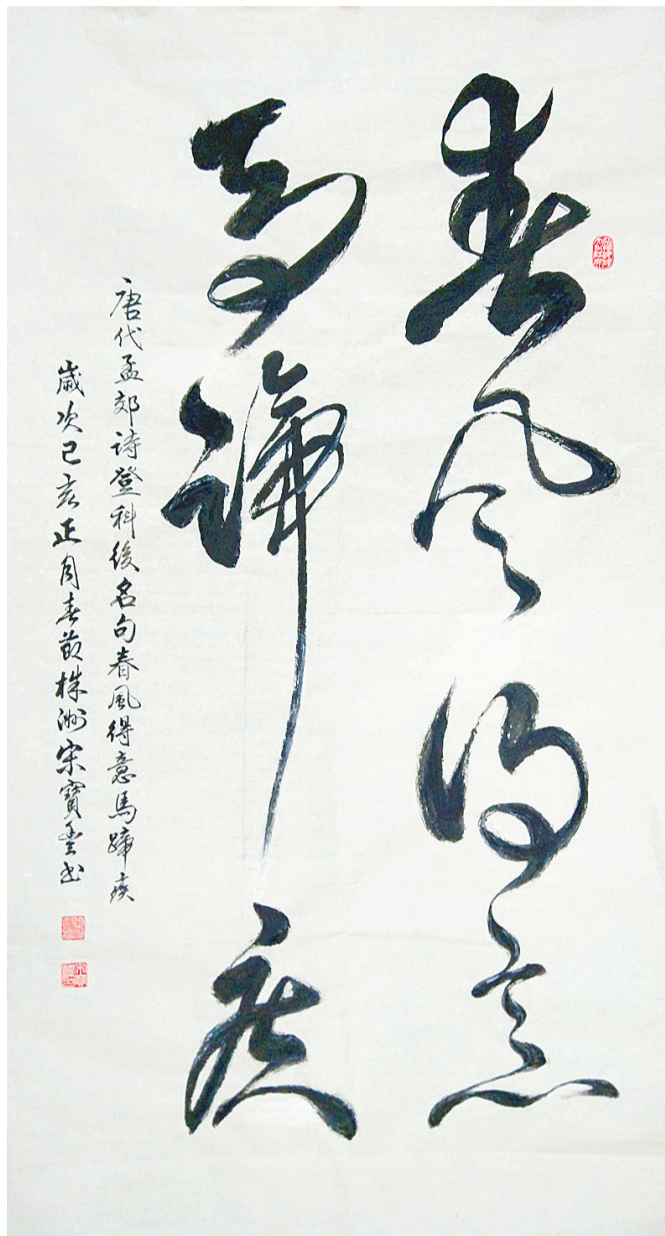 春风得意
马蹄疾
唐代孟郊诗登科後名句春風得意馬蹄疾
歲次己亥正月春節株洲宋寶雲书